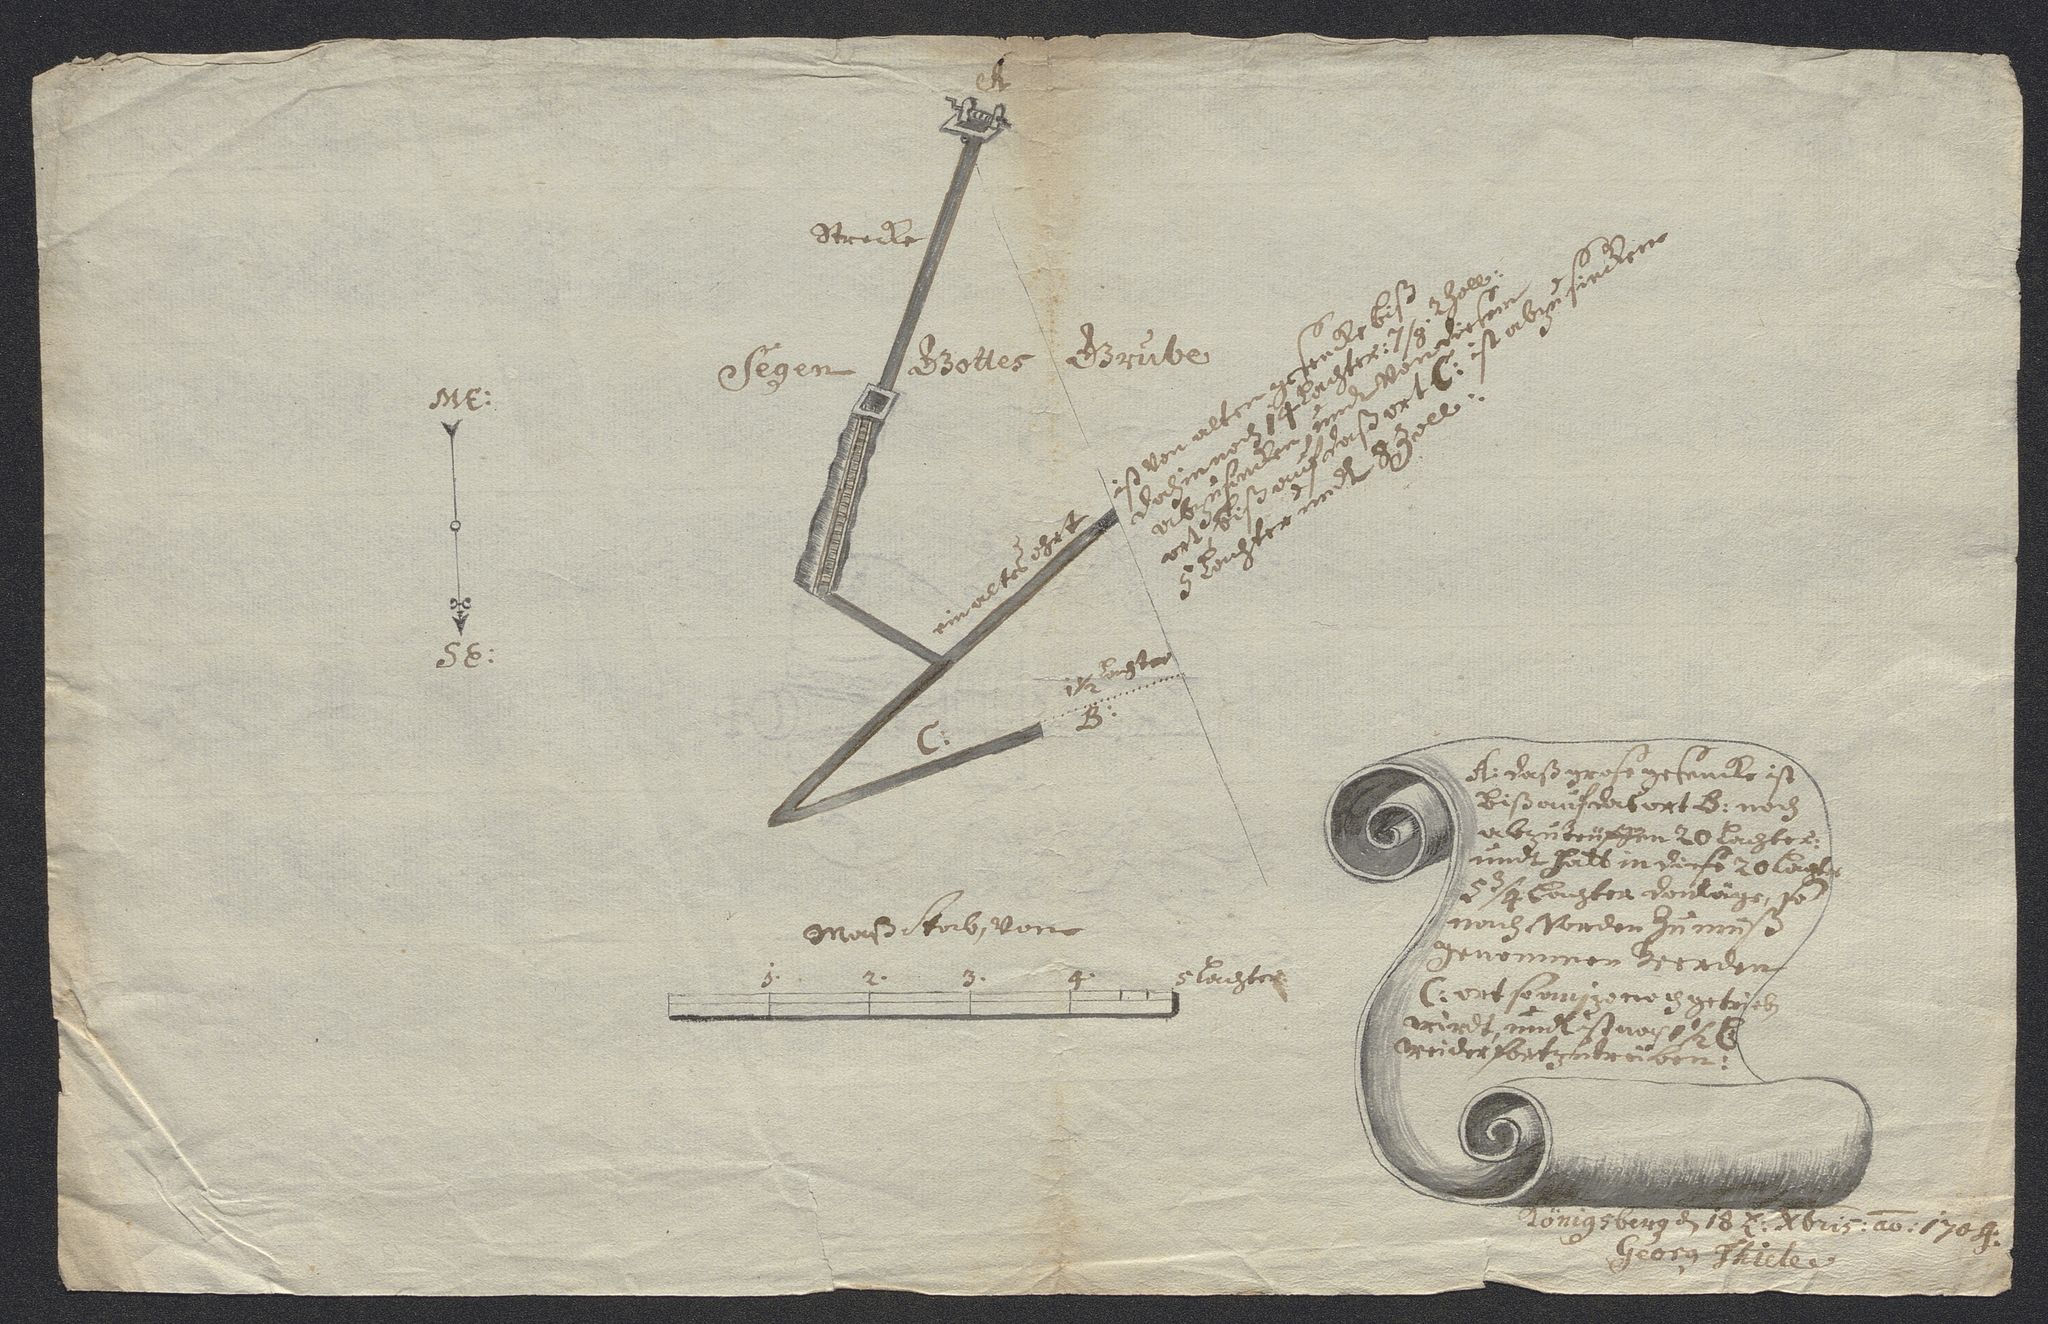 A
Strecke
Segen Gottes Grube
ME:
SE:
ein altes ohrt
ist von alten gesencke biß
dahin noch 14 Lachter: 7/8. 2 Zoll:
abzusincken, undt von diesen
ort, biß auf daß ort C: ist abzusincken
5 Lachter undt 8 Zoll:
1½ Lachter
B:
C:
Maß stab, von
1. 2. 3. 4. 5 Lachter
A: daß grose gesencke ist
biß auf das ort B: noch
abzuteuffen 20 Lachter:
undt hatt in diese 20 Lachter
5¾ Lachter donläge, so
nach Norden Zu muß
genommen werden
C: ort so anjzo noch getrieb
wirdt, undt ist noch 1½ L
weider fortzutreiben:
Königsberg d 18 Xbris: ao: 1704:
Georg Thiele